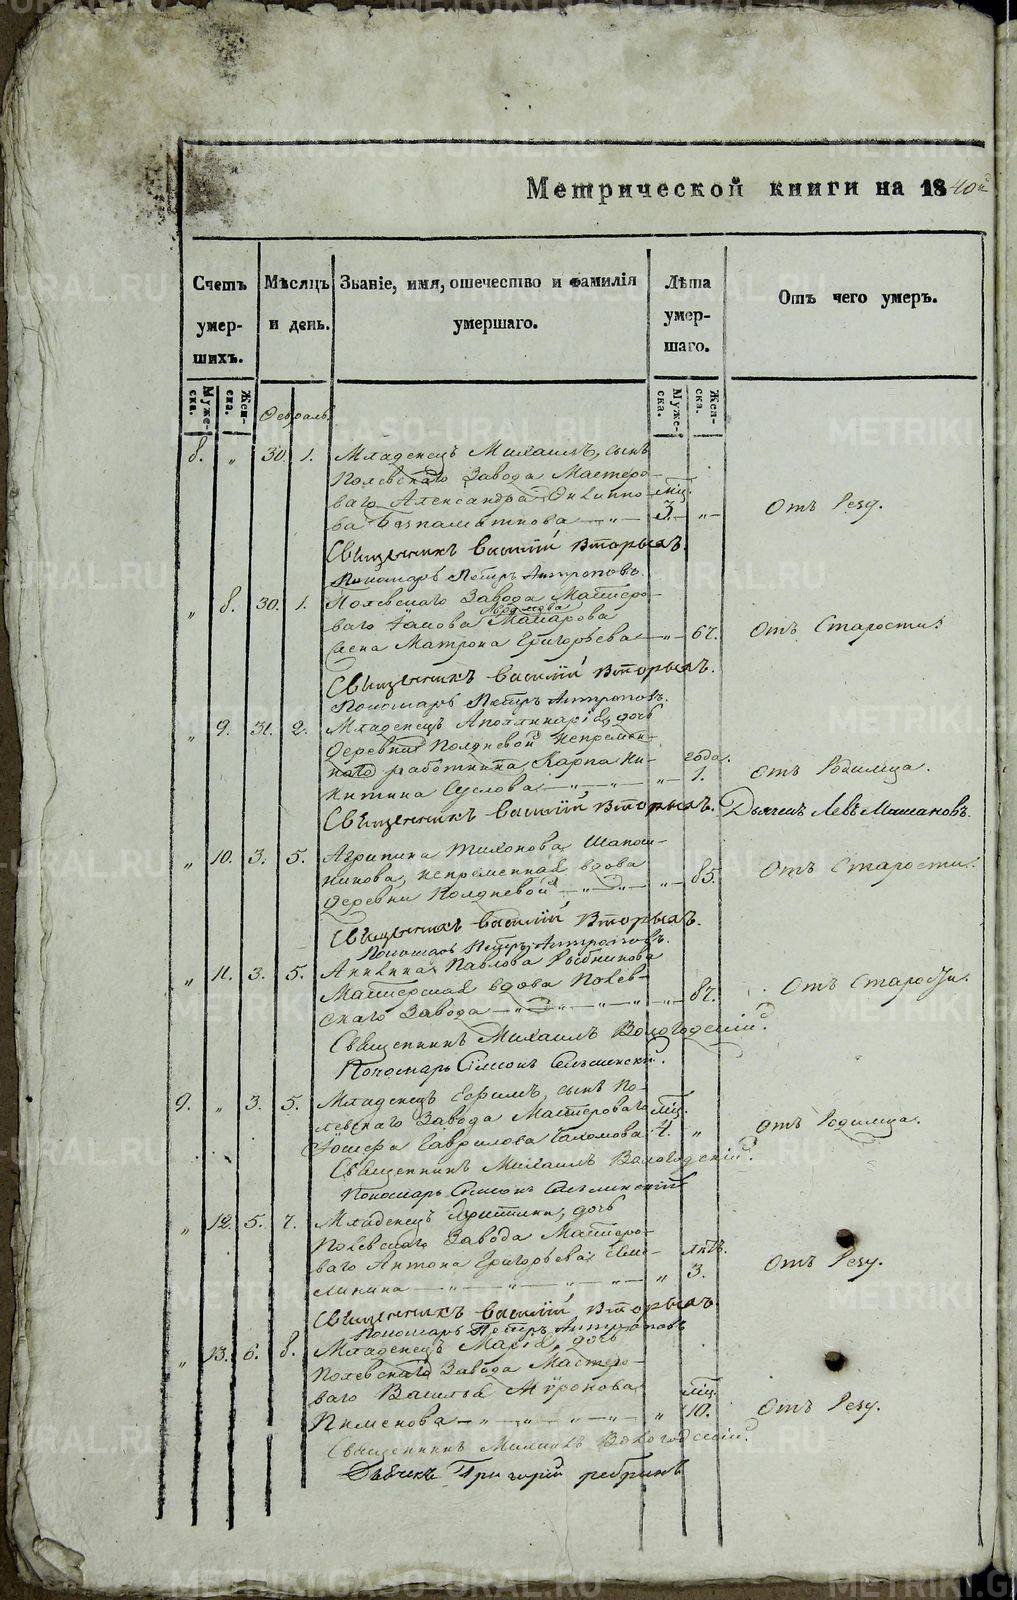 Метрической книги на 1840й
Счетъ умершихъ.
Мѣсяцъ и день.
Званіе, имя, отечество и фамилія умершаго.
Лѣта умершаго.
Отъ чего умеръ.
Мужеска. Женска.
Мужеска. Женска.
Февраль
8. „ 30. 1. Младенецъ Михаилъ, сынъ
Полевскаго Завода Мастеро-
ваго Александра Филиппо- мѣц.
ва Безпаматнова — „ — 3. „ Отъ Резу.
Священникъ Василій Вторыхъ.
Пономарь Петръ Антроповъ.
„ 8. 30. 1. Полевскаго Завода Мастеро-
ваго Іакова Макарова
жена Матрона Григорьева — „ — 67. Отъ Старости.
Священникъ Василій Вторыхъ.
Пономарь Петръ Антроповъ.
„ 9. 31. 2. Младенецъ Аполлинарія, дочь
деревни Полдневой непремен-
наго работника Карпа Ни- года.
китина Суслова — „ — „ — „ — 1. отъ Родимца.
Священникъ Василій Вторыхъ. Дьячекъ Левъ Машановъ.
„ 10. 3. 5. Агрипина Тихонова Шапош-
никова, непременная вдова
деревни Полдневой — „ — „ — 85. Отъ Старости.
Священникъ Василій Вторыхъ.
Пономарь Петръ Антроповъ.
„ 11. 3. 5. Павлова Рыбникова
Мастерская вдова Полев-
скаго Завода — „ — „ — „ — 87. Отъ Старости.
Священникъ Михаилъ Вологодскій.
Пономарь Симеонъ
9. „ 3. 5. Младенецъ Ефимъ, сынъ По-
левскаго Завода Мастероваго мѣц.
Іосифа Гаврилова Пахомова 4. „ отъ Родимца.
Священникъ Михаилъ Вологодскій.
Пономарь Симеонъ
„ 12. 5. 7. Младенецъ Христина, дочь
Полевскаго Завода Мастеро-
ваго Антона Григорьева лѣтъ.
— „ — „ — „ — „ 3. Отъ Резу.
Священникъ Василій Вторыхъ.
Пономарь Петръ Антроповъ
„ 13. 6. 8. Младенецъ Марія, дочь
Полевскаго Завода Мастеро-
ваго Василья Миронова мѣц.
Пименова — „ — „ — „ — „ 10. Отъ Резу.
Священникъ Михаилъ Вологодскій.
Дьячекъ Григорій Ребринъ
METRIKI.GASO-URAL.RU